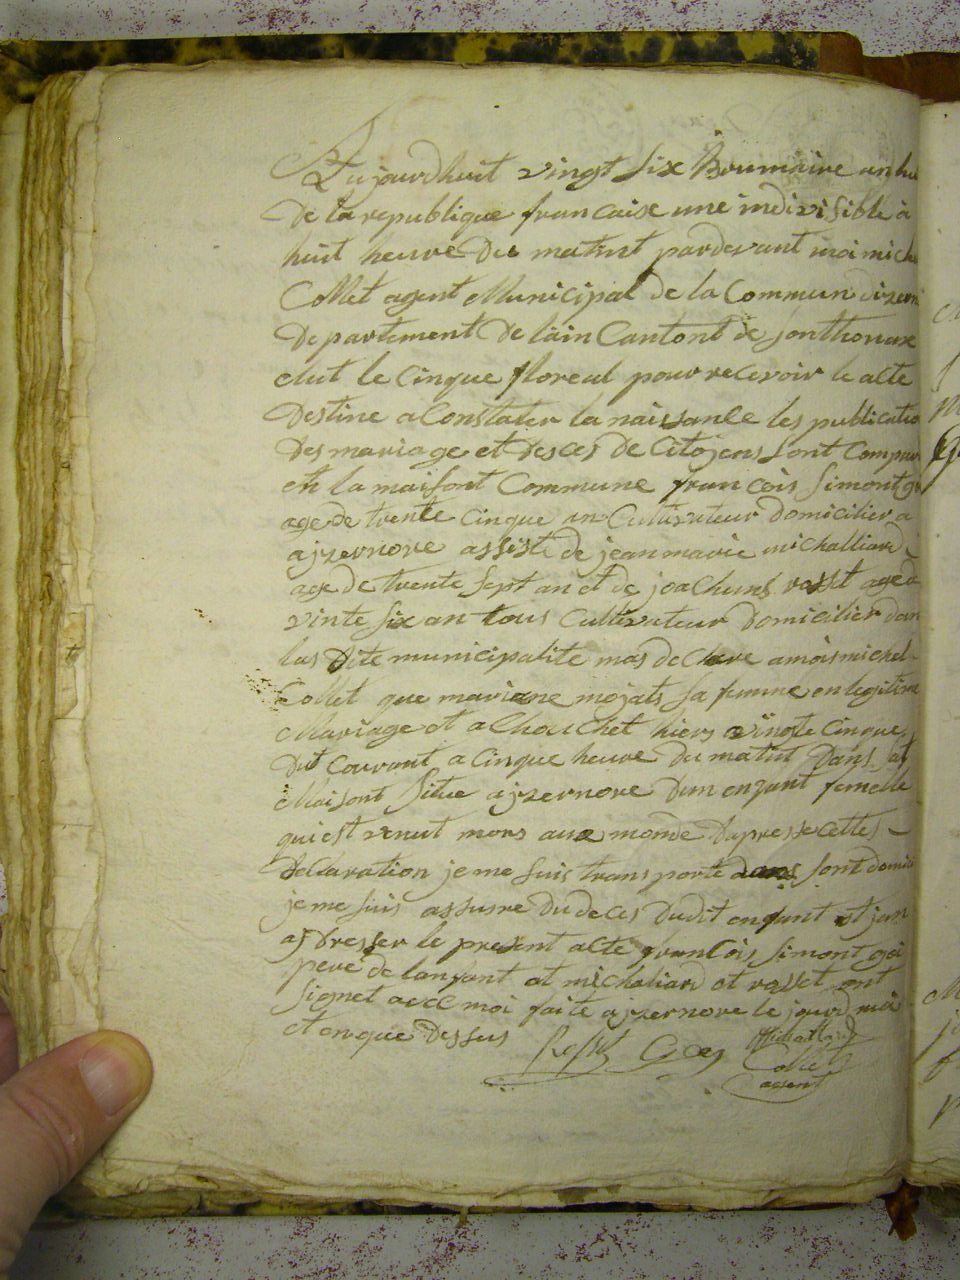 Aujourdhuit vingt six Brumaire an hu
De la republique francaise une indivisible a
huit heure Du matint pardevant moi miche
Collet agent Municipal de la Commun dizern
Departement De lain Cantont de sonthonnax
elut le cinque floreal pour recevoir le acte
Destine a Constater la naissance les publicatio
Des mariage et desces de Citojens sont Compar
en la maisont Commune francois simont go
age de trente cinque an Cultivateur Domicilier a
ajzernore assiste de jean marie michalliard
age De trente sept an et de joachims rosset age de
vinte six an tous Cultivateur Domicilier dan
las Dite municipalite mas declare a mois michel
Collet que mariane mojats sa femme en legitime
Mariage et a Chouchet hiers vingte cinque
Dut Courant a cinque heure Du matit Dans sa
Maisont situe ajzernore Dun enfant femelle
qui est venut mors aux monde Dapresse cettes
Declaration je me suis transporte dans sont domic
je me suis assusre Du deces Dudit enfant et jen
aj Dresser le present alte francois simont goi
pere de lanfant et michaliard et rosset ont
signet avec moi faite ajzernore le jour moi
et an que Dessus
Rosset Goy Michalliard
Collet
agent